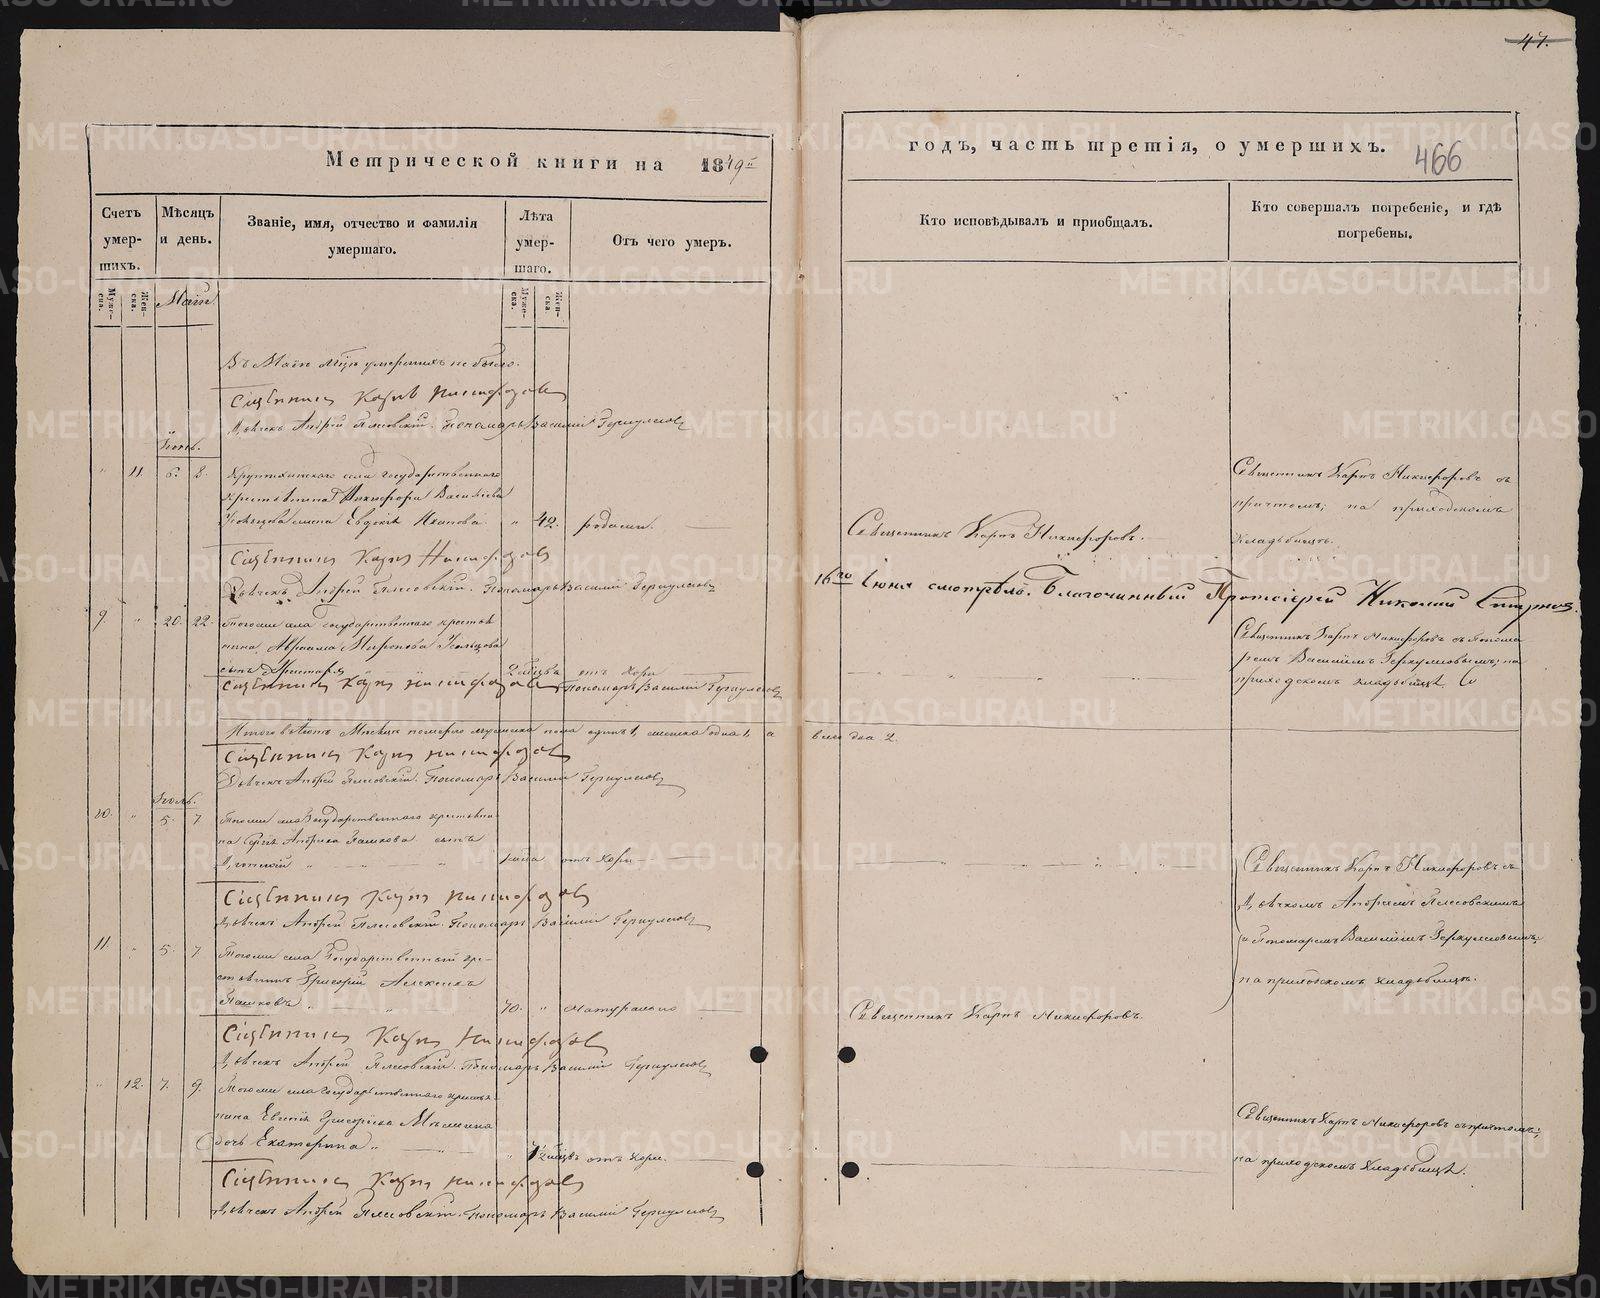 47.
466
Метрической книги на 1849й
годъ, часть третія, о умершихъ.
Счетъ умер-шихъ.
Мѣсяцъ и день.
Званіе, имя, отчество и фамилія умершаго.
Лѣта умер-шаго.
Отъ чего умеръ.
Кто исповѣдывалъ и пріобщалъ.
Кто совершалъ погребеніе, и гдѣ погребены.
Муже-ска.
Жен-ска.
Муже-ска.
Жен-ска
Маій
Въ Маіи умершихъ не было.
Священникъ Карпъ Никифоровъ
Дьячекъ Андрей Плесовскій. Пономарь Василій Геркулесовъ
Іюнь.
11. 6. 8. села государственнаго
крестьянина Никифора Васильева
жена Евдокія Иванова. 42. родами.
Священникъ Карпъ Никифоровъ.
Священникъ Карпъ Никифоровъ съ
причтомъ; на приходскомъ
кладбищѣ.
Священникъ Карпъ Никифоровъ
Дьячекъ Андрей Плесовскій. Пономарь Василій Геркулесовъ
16го Іюня смотрѣлъ Благочинный Протоіерей Николай
9. 20. 22. Тогоже села государственнаго крестья
нина Авраама Миронова
сынъ 2 мѣсца отъ кори
Священникъ Карпъ Никифоровъ съ Понома
ремъ Василіемъ Геркулесовымъ; на
приходскомъ кладбищѣ.
Священникъ Карпъ Никифоровъ Пономарь Василій Геркулесовъ
Итого въ Іюнѣ Мѣсяцѣ померло мужеска пола одинъ 1, женска одна 1, а
всего два 2.
Священникъ Карпъ Никифоровъ
Дьячекъ Андрей Плесовскій. Пономарь Василій Геркулесовъ
Іюль.
10. 5. 7 Тогоже села Государственнаго крестьяни
на Андреева Пашкова сынъ
отъ кори
Священникъ Карпъ Никифоровъ съ
Дьячкомъ Андреемъ Плесовскимъ
и Пономаремъ Василіемъ Геркулесовымъ;
на приходскомъ кладбищѣ.
Священникъ Карпъ Никифоровъ
Дьячекъ Андрей Плесовскій. Пономарь Василій Геркулесовъ
11. 5. 7 Тогоже села Государственный кре-
стьянинъ Григорій Алексѣевъ
Пашковъ 70. натурально
Священникъ Карпъ Никифоровъ.
Священникъ Карпъ Никифоровъ
Дьячекъ Андрей Плесовскій. Пономарь Василій Геркулесовъ
12. 7. 9. Тогоже села государственнаго крестья-
нина Евгенія Григорьева
дочь Екатерина отъ кори.
Священникъ Карпъ Никифоровъ съ причтомъ;
на приходскомъ кладбищѣ.
Священникъ Карпъ Никифоровъ
Дьячекъ Андрей Плесовскій. Пономарь Василій Геркулесовъ
METRIKI.GASO-URAL.RU